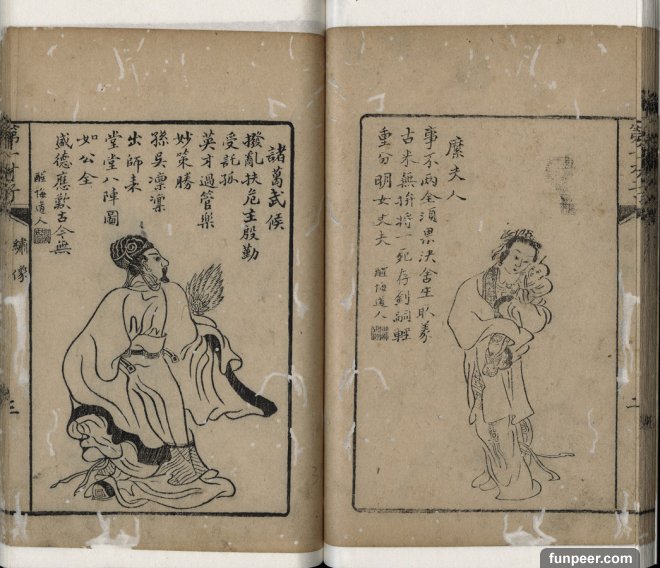 糜夫人
事不兩全須果决舍生取義
古来無拚將一死存劉嗣輕
重分明女丈夫
醒悔道人
二
諸葛武侯
撥亂扶危主殷勤
受託孤
英才過管樂
妙策勝
孫吳凛凛
出師表
堂堂八陣圖
如公全
盛德應歎古今無
醒悔道人
繡像
三
funpeer.com